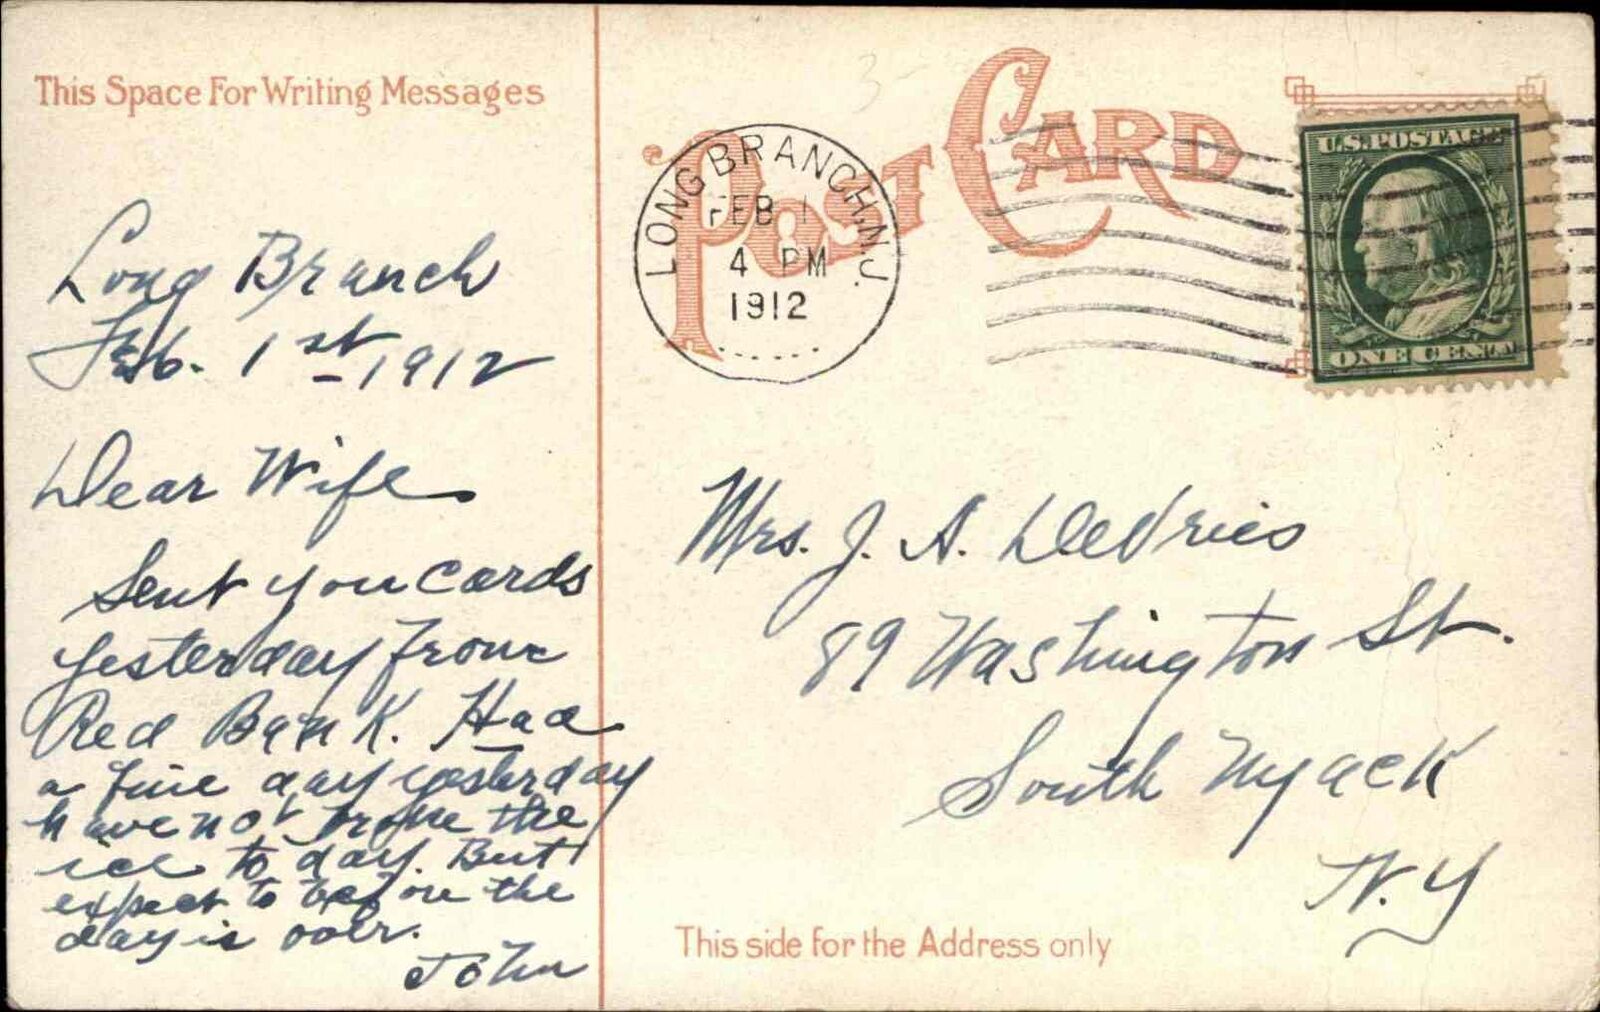 This Space For Writing Messages
Long Branch
Feb. 1st 1912
Dear Wife
Sent you cards
yesterday from
Red Bank. Had
a fine day yesterday
have not broke the
ice to day. But
expect to before the
day is over.
John
POST CARD
LONG BRANCH, N.J.
FEB 1
4 PM
1912
U.S. POSTAGE
ONE CENT
Mrs. J. A. DeVries
89 Washington St.
South Nyack
N.Y
This side for the Address only